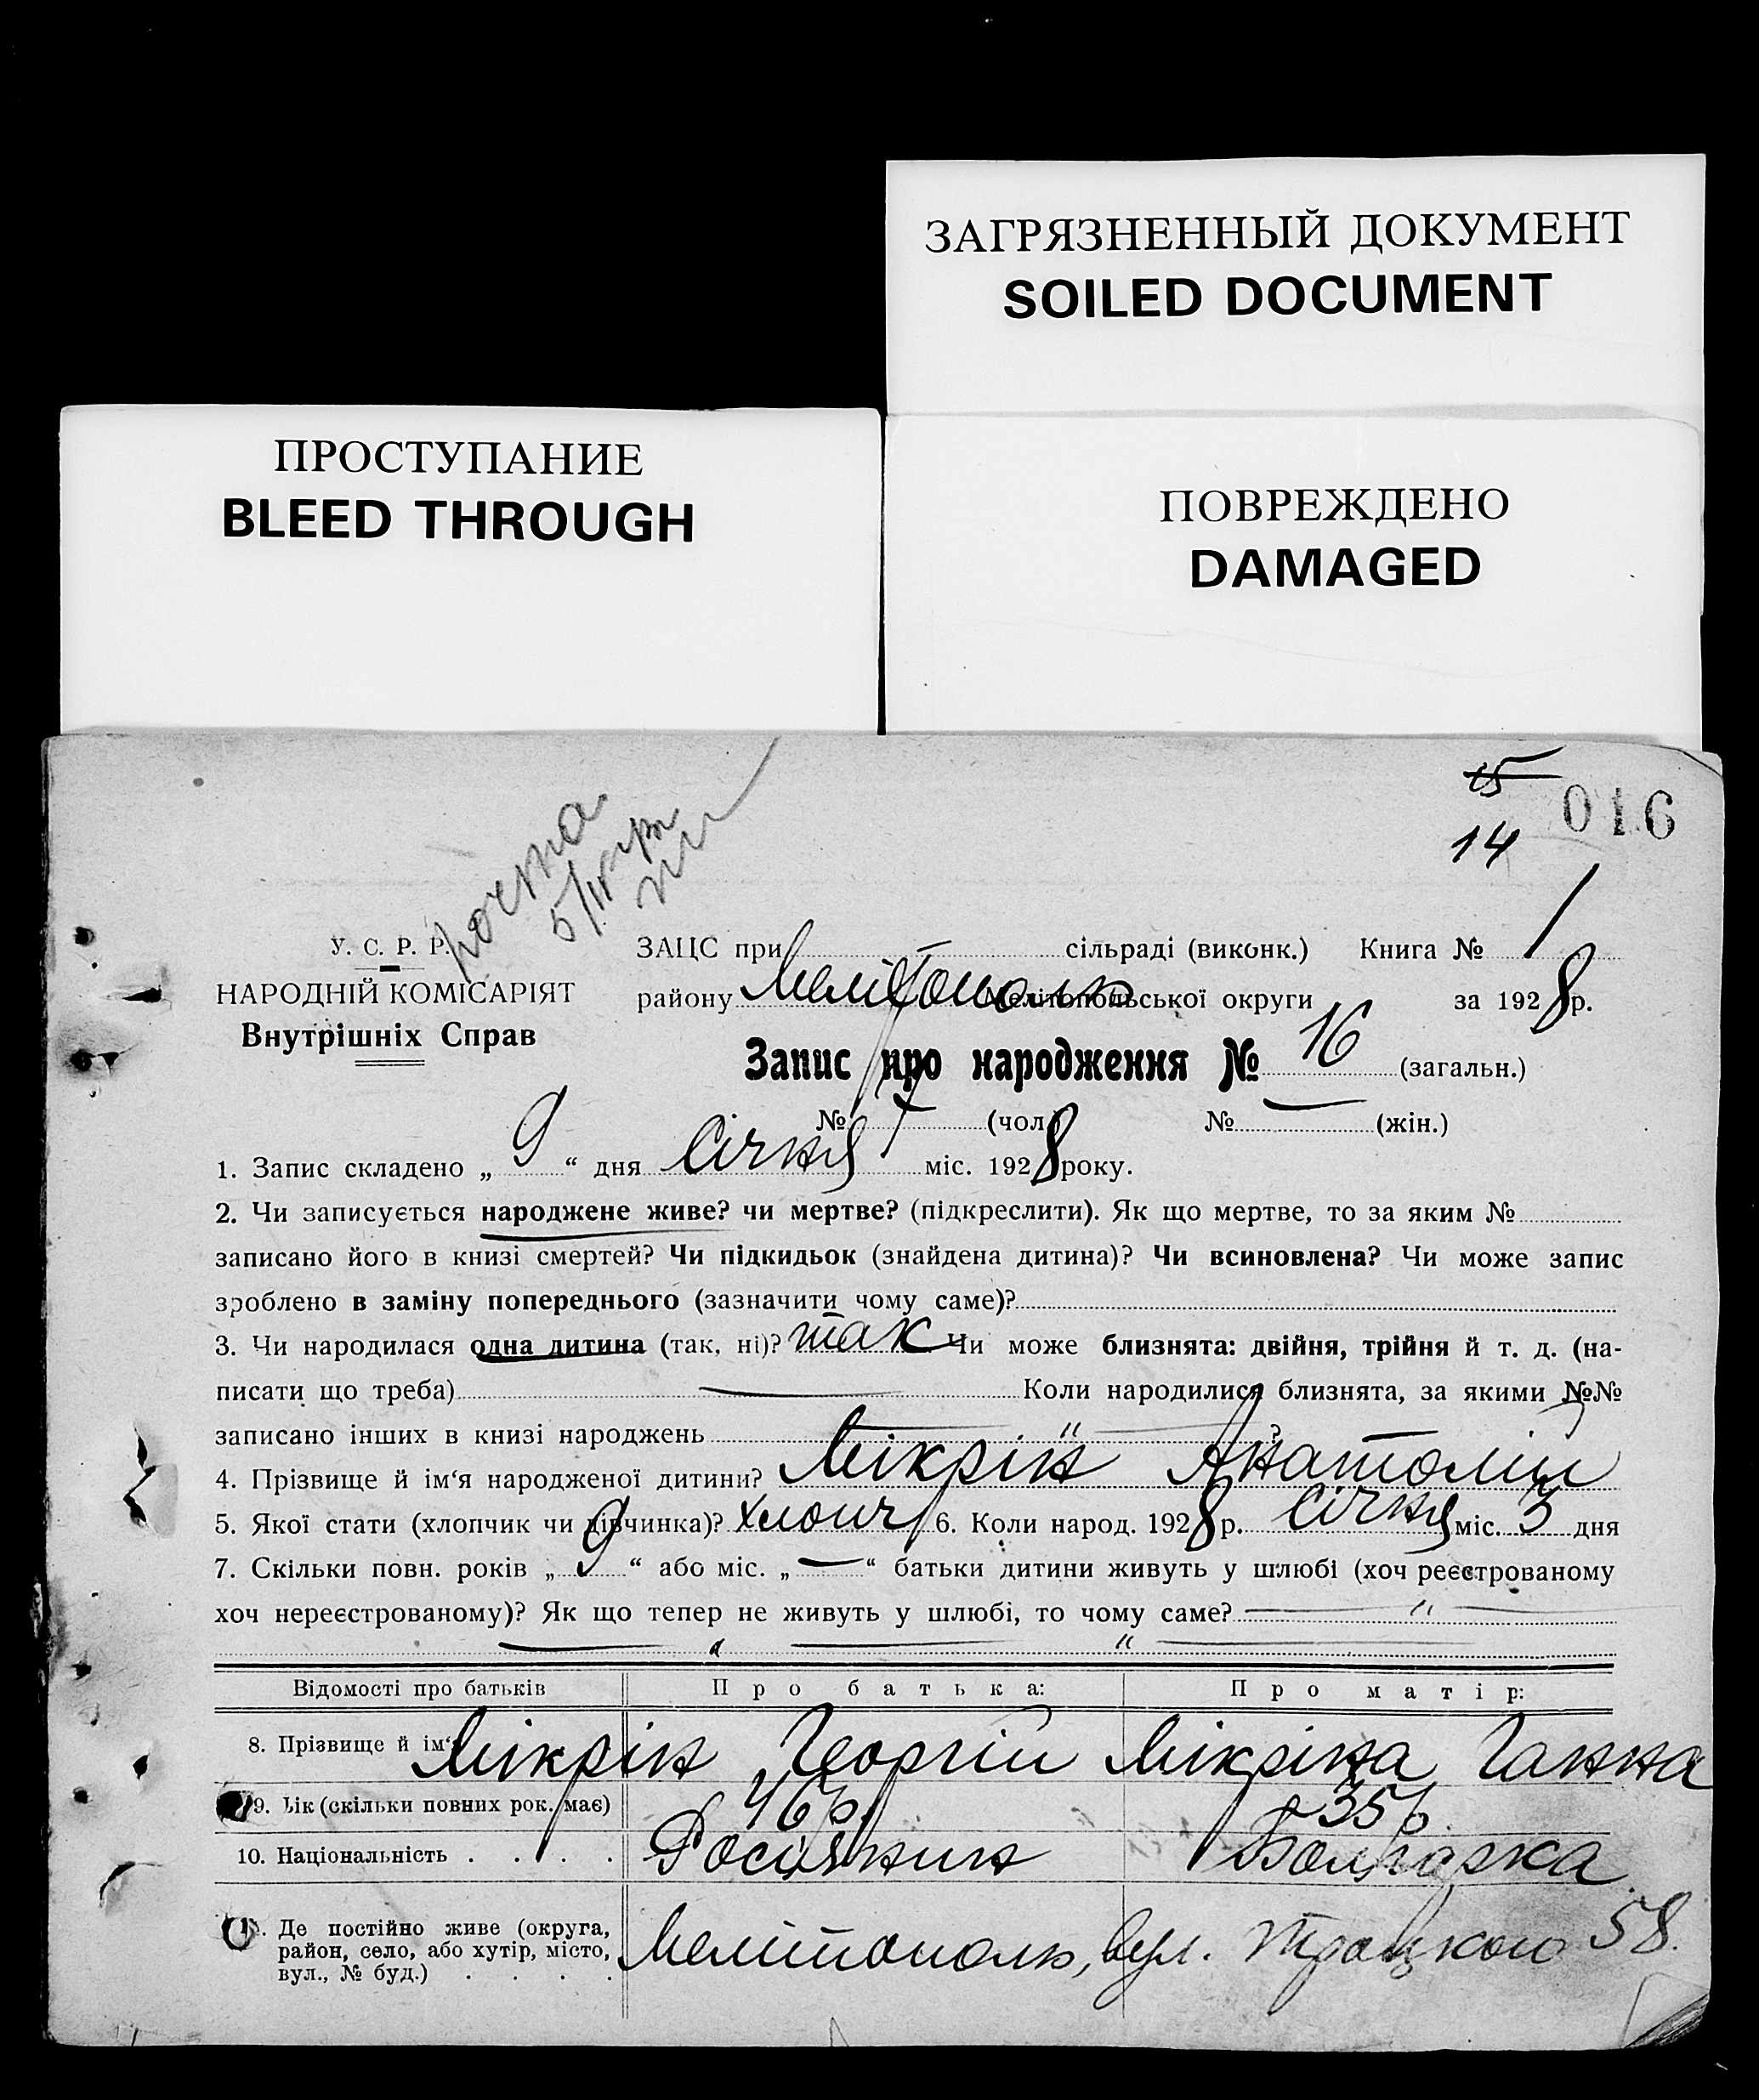 ЗАГРЯЗНЕННЫЙ ДОКУМЕНТ
SOILED DOCUMENT
ПРОСТУПАНИЕ
BLEED THROUGH
ПОВРЕЖДЕНО
DAMAGED
15
016
14
почта
У. С. Р. Р.
НАРОДНІЙ КОМІСАРІЯТ
Внутрішніх Справ
ЗАЦС при сільраді (виконк.) Книга № 1
району Мелітополь Мелітопольської округи за 1928 р.
Запис про народження № 16 (загальн.)
№ 7 (чол.) № — (жін.)
1. Запис складено „ 9 “ дня Січня міс. 1928 року.
2. Чи записується народжене живе? чи мертве? (підкреслити). Як що мертве, то за яким №
записано його в книзі смертей? Чи підкидьок (знайдена дитина)? Чи всиновлена? Чи може запис
зроблено в заміну попереднього (зазначити чому саме)?
3. Чи народилася одна дитина (так, ні)? так Чи може близнята: двійня, трійня й т. д. (на-
писати що треба) — Коли народилися близнята, за якими №№
записано інших в книзі народжень — " — ?
4. Прізвище й ім‘я народженої дитини? Мікрін Анатолій
5. Якої стати (хлопчик чи дівчинка)? хлопч 6. Коли народ. 1928 р. Січня міс. 3 дня
7. Скільки повн. років „ 9 “ або міс. „ — “ батьки дитини живуть у шлюбі (хоч реєстрованому
хоч нереєстрованому)? Як що тепер не живуть у шлюбі, то чому саме? — " —
— " — " —
Відомості про батьків Про батька: Про матір:
8. Прізвище й ім‘я Мікрін Георгій Мікріна Ганна
9. Вік (скільки повних рок. має) 46 р. 35 р.
10. Національність . . . . Росіянин Болгарка
11. Де постійно живе (округа,
район, село, або хутір, місто,
вул., № буд.) . . . . Мелітополь, вул. Троцького 58.